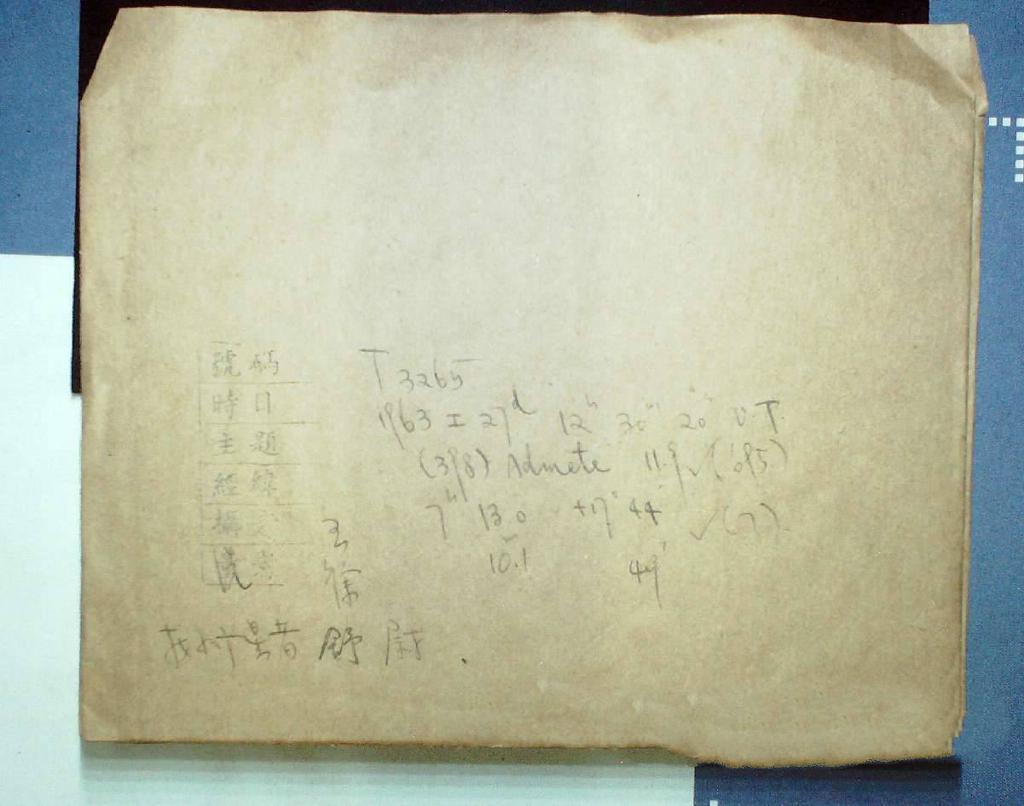 號碼 T 3265
時日 1963 I 27ᵈ 12ʰ 30ᵐ 20ˢ U.T.
主題 (398) Admete 11.9
經緯 7ʰ 13.0 +17° 44' √(7).
攝 王 10.1 49'
徐
舒 尉.